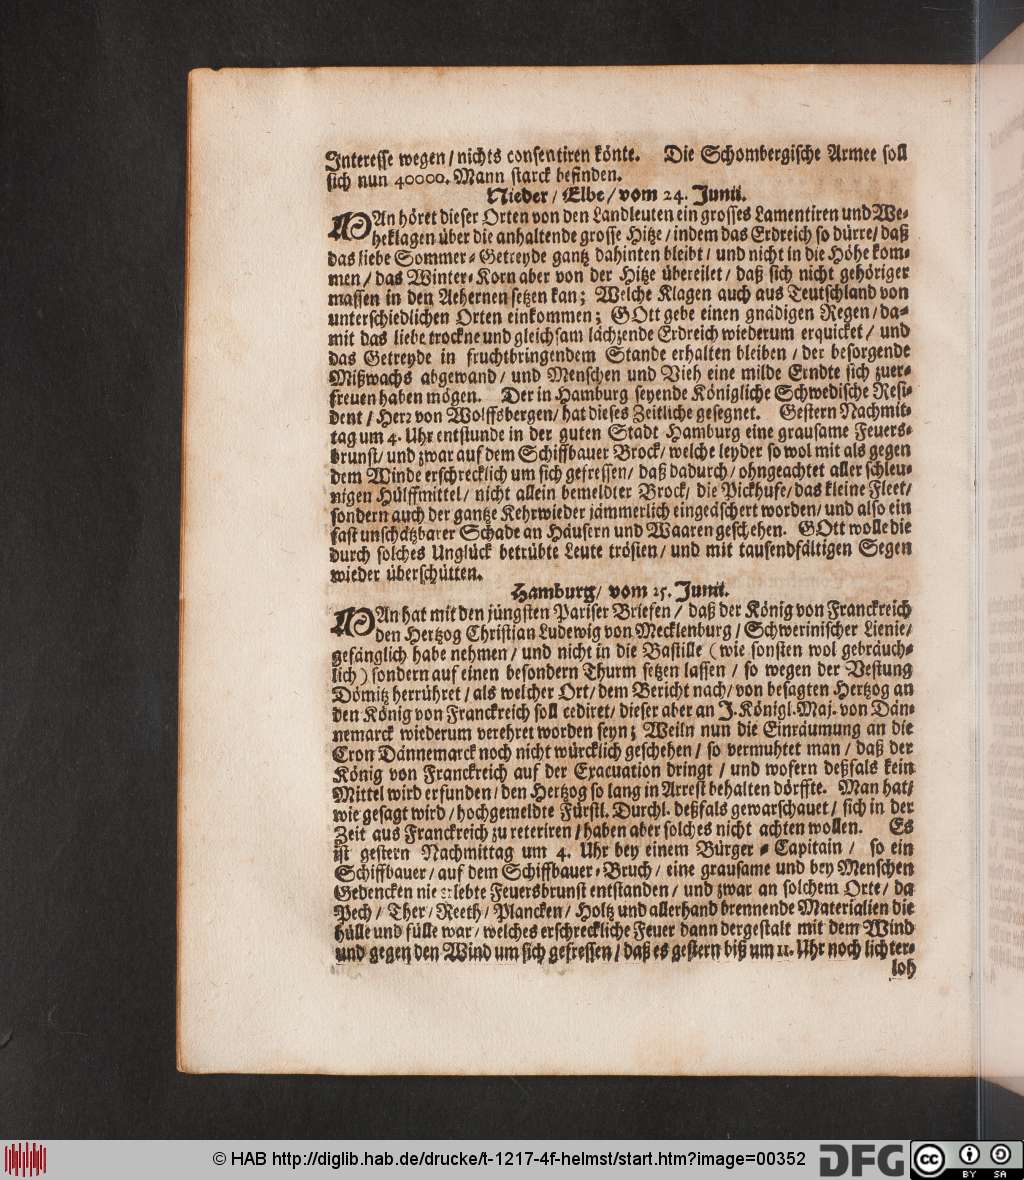 Interesse wegen / nichts consentiren könte. Die Schombergische Armee soll
sich nun 40000. Mann starck befinden.
Nieder / Elbe / vom 24. Junii.
MAn höret dieser Orten von den Landleuten ein grosses Lamentiren und We-
heklagen über die anhaltende grosse Hitze / indem das Erdreich so dürre / daß
das liebe Sommer-Getreyde gantz dahinten bleibt / und nicht in die Höhe kom-
men / das Winter-Korn aber von der Hitze übereilet / daß sich nicht gehöriger
massen in den Aehernen setzen kan; Welche Klagen auch aus Teutschland von
unterschiedlichen Orten einkommen; GOtt gebe einen gnädigen Regen / da-
mit das liebe trockne und gleichsam lächzende Erdreich wiederum erquicket / und
das Getreyde in fruchtbringendem Stande erhalten bleiben / der besorgende
Mißwachs abgewand / und Menschen und Vieh eine milde Erndte sich zuer-
freuen haben mögen. Der in Hamburg seyende Königliche Schwedische Resi-
dent / Herz von Wolffsbergen / hat dieses Zeitliche gesegnet. Gestern Nachmit-
tag um 4. Uhr entstunde in der guten Stadt Hamburg eine grausame Feuers-
brunst / und zwar auf dem Schiffbauer Brock / welche leyder so wol mit als gegen
dem Winde erschrecklich um sich gefressen / daß dadurch / ohngeachtet aller schleu-
nigen Hülffmittel / nicht allein bemeldter Brock / die Pickhufe / das kleine Fleet /
sondern auch der gantze Kehrwieder jämmerlich eingeäschert worden / und also ein
fast unschätzbarer Schade an Häusern und Waaren geschehen. GOtt wolle die
durch solches Unglück betrübte Leute trösten / und mit tausendfältigen Segen
wieder überschütten.
Hamburg / vom 25. Junii.
MAn hat mit den jüngsten Pariser Briefen / daß der König von Franckreich
den Hertzog Christian Ludewig von Mecklenburg / Schwerinischer Lienie /
gefänglich habe nehmen / und nicht in die Bastille (wie sonsten wol gebräuch-
lich) sondern auf einen besondern Thurm setzen lassen / so wegen der Vestung
Dömitz herrühret / als welcher Ort / dem Bericht nach / von besagten Hertzog an
den König von Franckreich soll cediret / dieser aber an J. Königl. Maj. von Dän-
nemarck wiederum verehret worden seyn; Weiln nun die Einräumung an die
Cron Dännemarck noch nicht würcklich geschehen / so vermuhtet man / daß der
König von Franckreich auf der Exacuation dringt / und wofern deßfals kein
Mittel wird erfunden / den Hertzog so lang in Arrest behalten dörffte. Man hat /
wie gesagt wird / hochgemeldte Fürstl. Durchl. deßfals gewarschauet / sich in der
Zeit aus Franckreich zu reteriren / haben aber solches nicht achten wollen. Es
ist gestern Nachmittag um 4. Uhr bey einem Bürger-Capitain / so ein
Schiffbauer / auf dem Schiffbauer-Bruch / eine grausame und bey Menschen
Gedencken nie erlebte Feuersbrunst entstanden / und zwar an solchem Orte / da
Pech / Ther / Reeth / Plancken / Holtz und allerhand brennende Materialien die
hülle und fülle war / welches erschreckliche Feuer dann dergestalt mit dem Wind
und gegen den Wind um sich gefressen / daß es gestern biß um 11. Uhr noch lichter-
loh
© HAB http://diglib.hab.de/drucke/t-1217-4f-helmst/start.htm?image=00352
DFG
cc BY SA